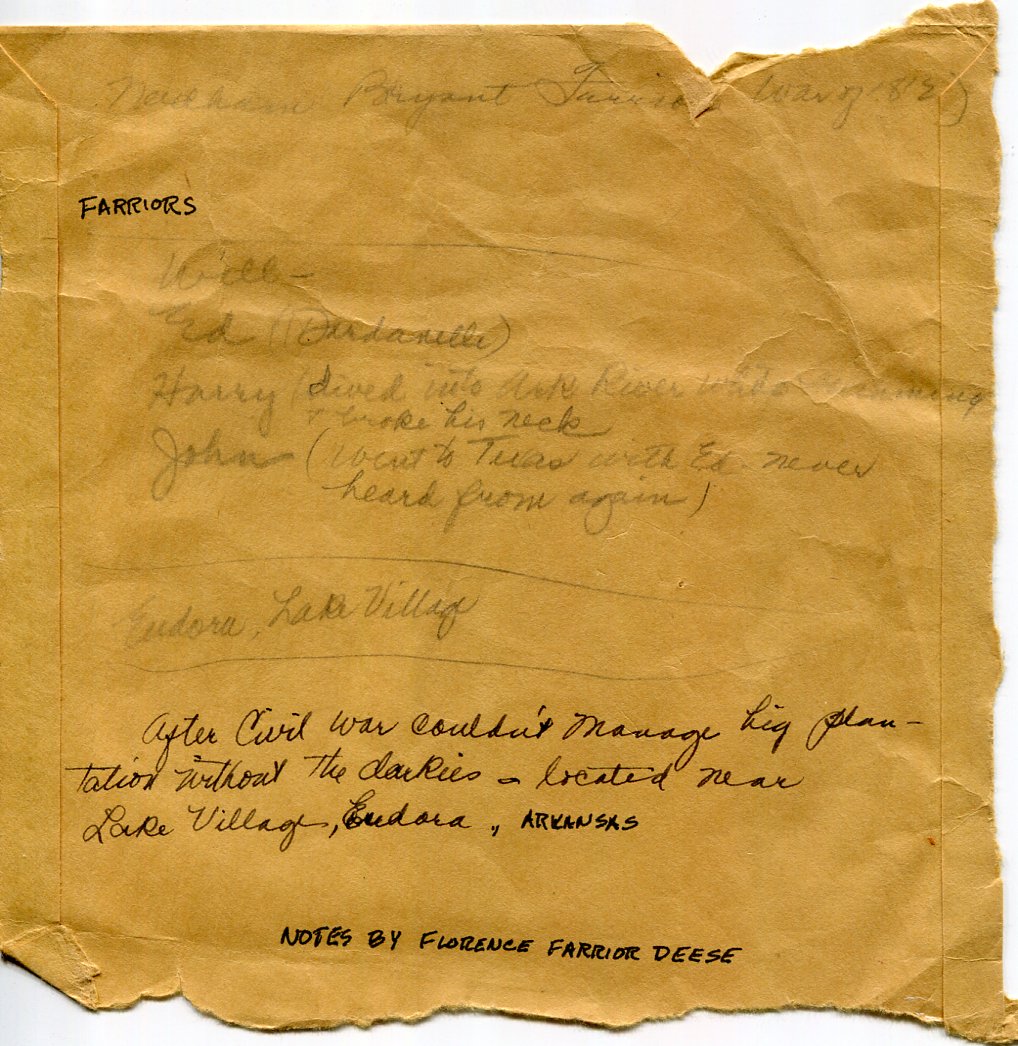 Needham Bryant Farrior War of 1812
FARRIORS
Will -
Ed (Dardanelle)
Harry (dived into Ark River while swimming
& broke his neck
John - (went to Texas with Ed. never
heard from again)
Eudora, Lake Village
After Civil War couldn't manage big plan-
tation without the darkies - located near
Lake Village, Eudora, ARKANSAS
NOTES BY FLORENCE FARRIOR DEESE